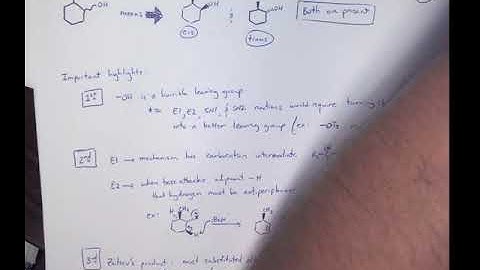 OH
OH
OH
Both are present
cis
trans
Important highlights:
1st -OH is a horrible leaving group
E1, E2, SN1, & SN2 reactions would require turning it
into a better leaving group (ex: -OTs
2nd E1 → mechanism has carbocation intermediate
E2 → when base attacks adjacent -H
that hydrogen must be antiperiplanar
ex: CH3 Base CH3
3rd Zaitsev's product: most substituted